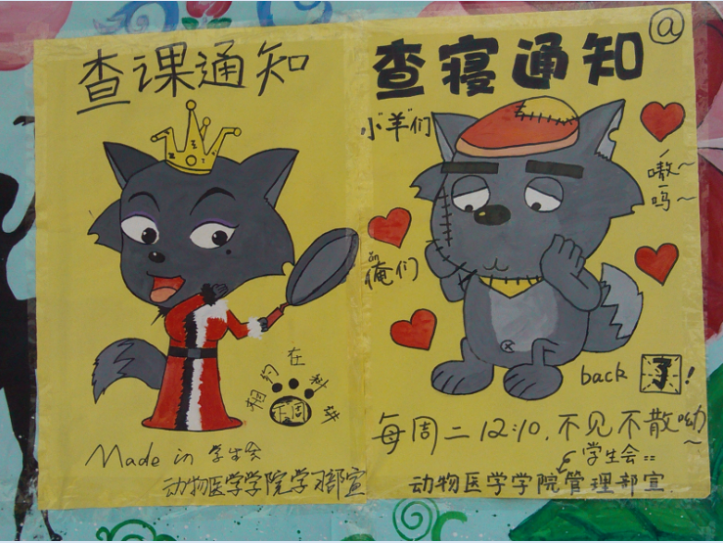 查课通知
相约在
下周
Made in 学生会
动物医学学院学习部宣
查寝通知
@
小"羊"们
嗷~
呜~
俺们
back 了!
每周二12:10,不见不散呦~
学生会
动物医学学院管理部宣